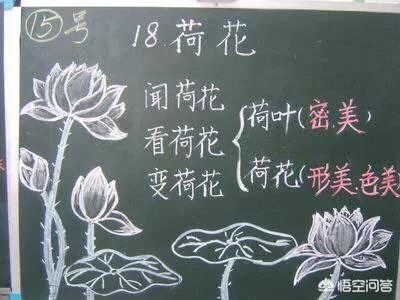 ⑮号
18.荷花
闻荷花
看荷花
变荷花
荷叶(密、美)
荷花(形美、色美
悟空问答